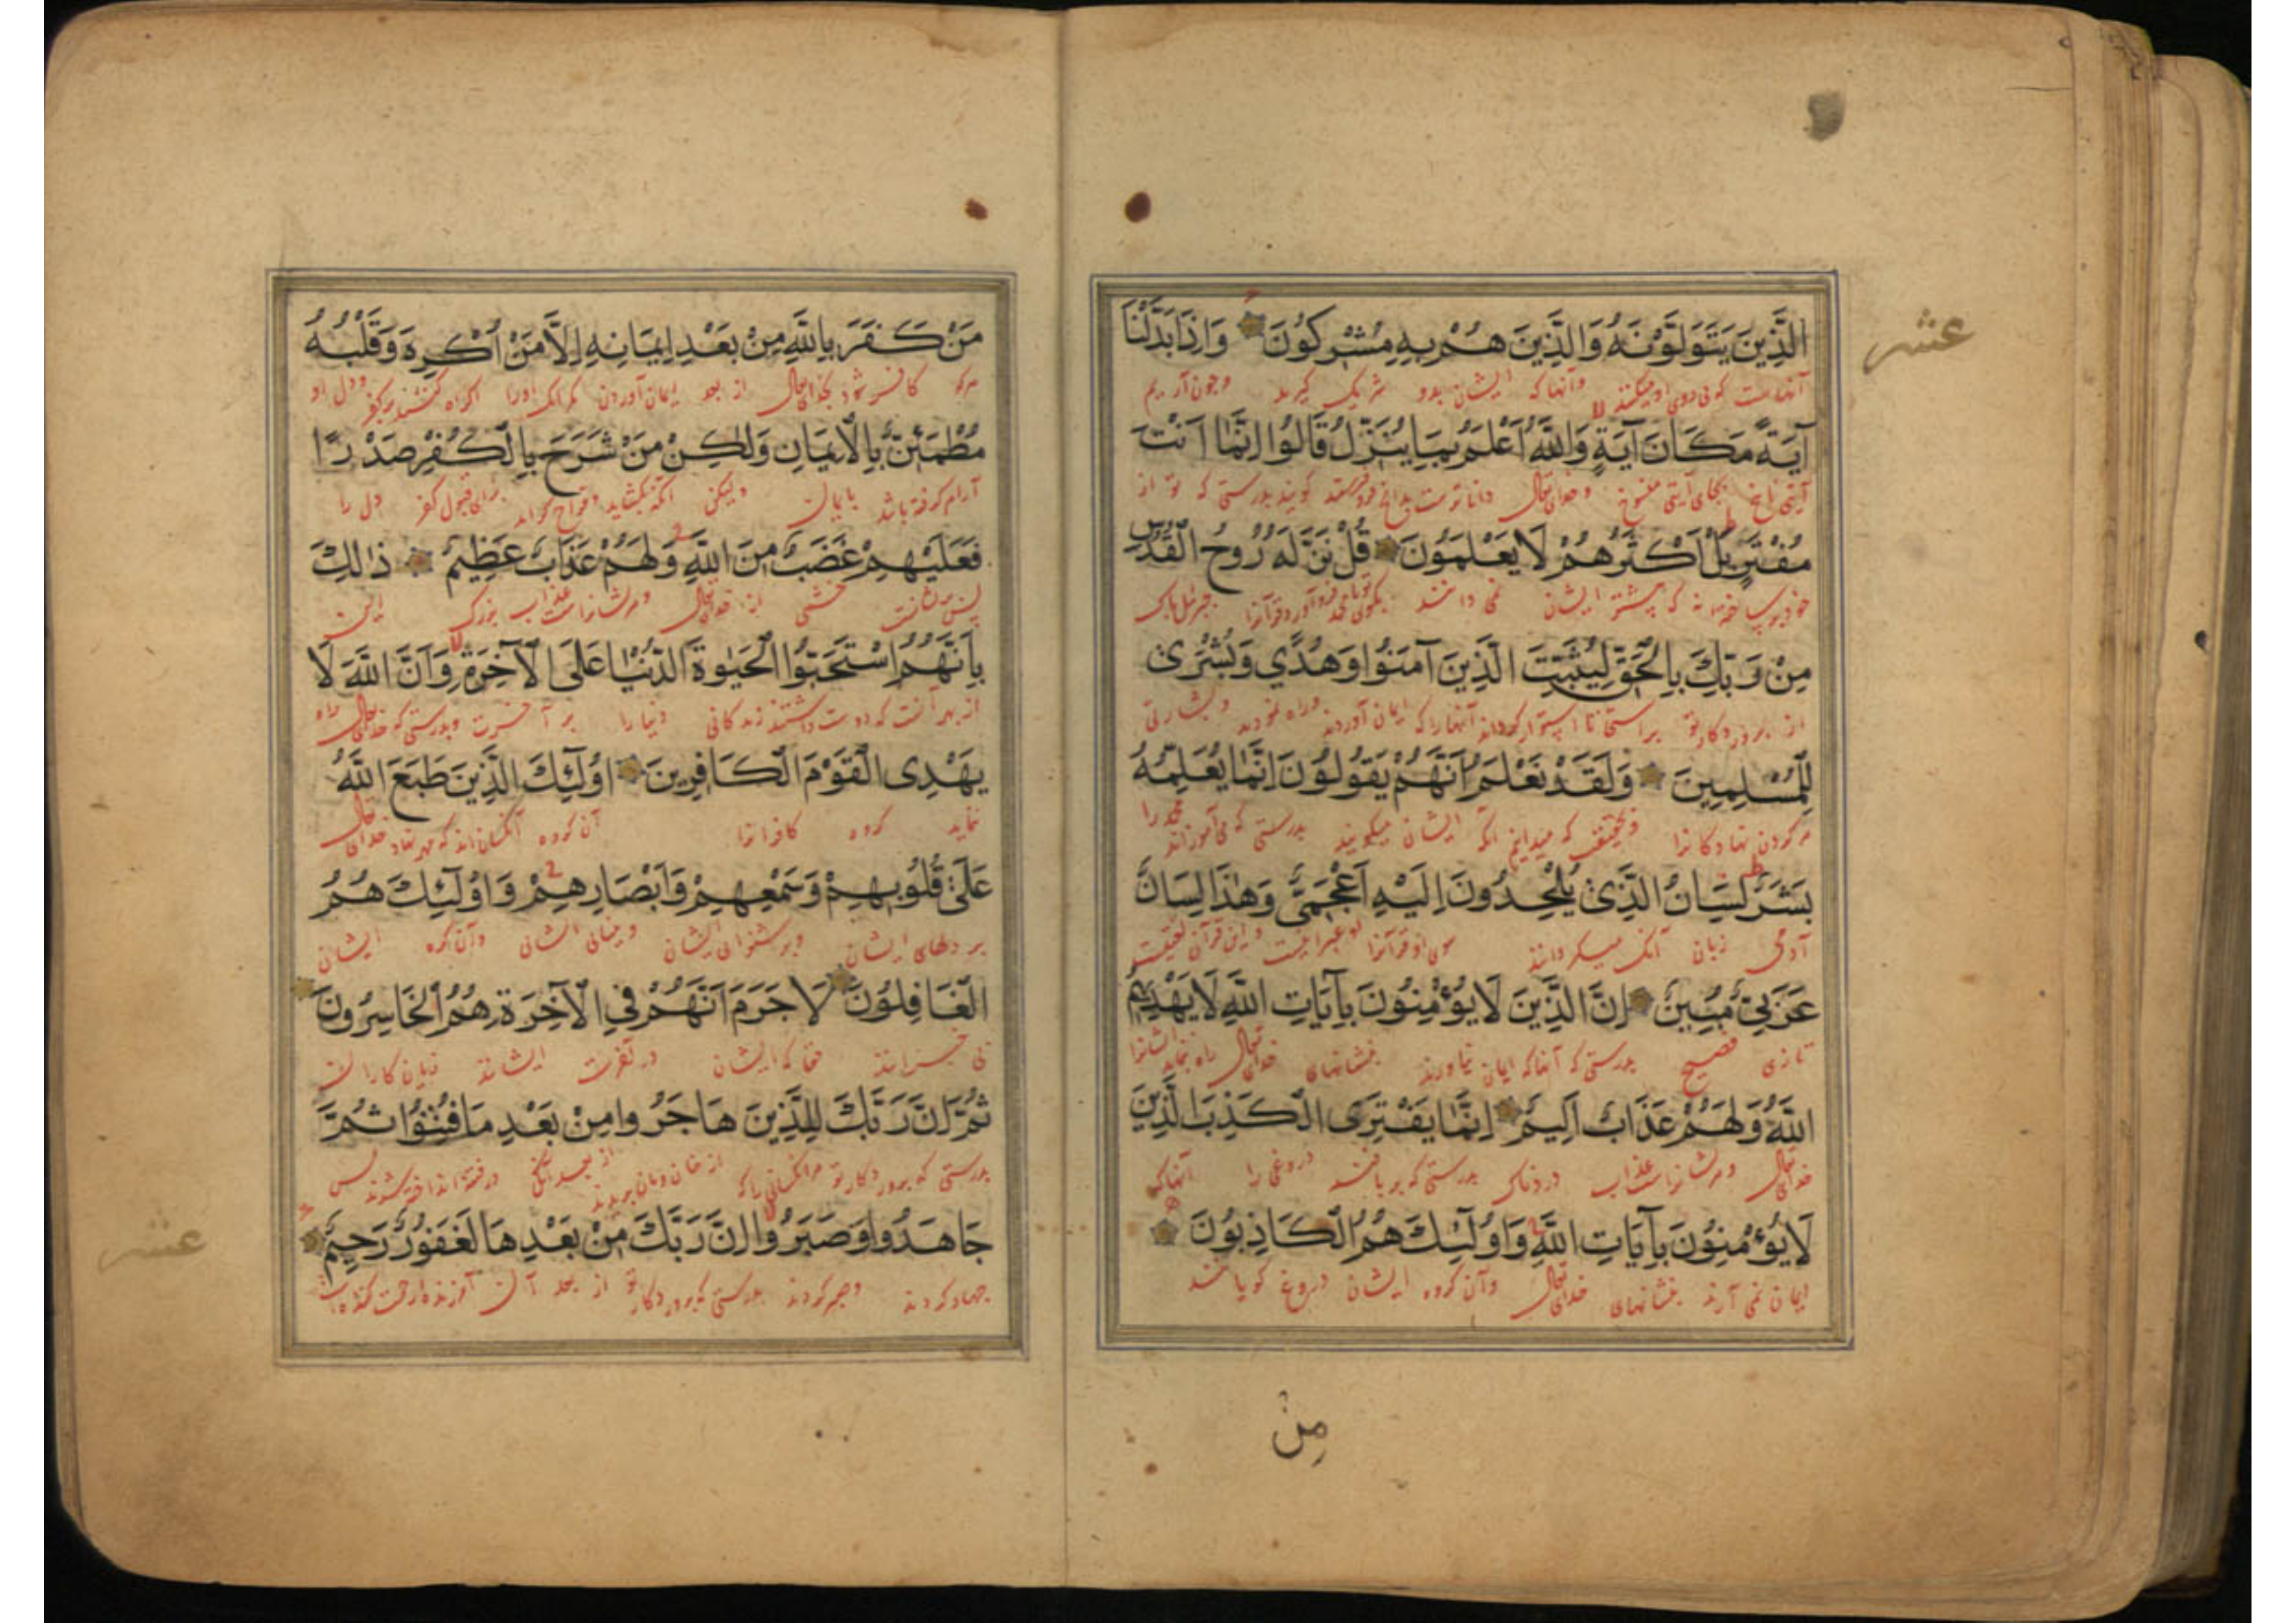 الَّذِينَ يَتَوَلَّوْنَهُ وَالَّذِينَ هُمْ بِهِ مُشْرِكُونَ وَاِذَا بَدَّلْنَا
عشر
وآنها که ایشان بدو شریک گیرند وچون آریم
آيَةً مَكَانَ آيَةٍ وَاللَّهُ اَعْلَمُ بِمَا يُنَزِّلُ قَالُوا اِنَّمَا اَنْتَ
آیتی ناسخ بجای آیتی منسوخ وخدای تعالی داناترست گویند بدرستی که تو
مُفْتَرٍ بَلْ اَكْثَرُهُمْ لَا يَعْلَمُونَ قُلْ نَزَّلَهُ رُوحُ الْقُدُسِ
که بیشتر ایشان نمی دانند
مِنْ رَبِّكَ بِالْحَقِّ لِيُثَبِّتَ الَّذِينَ آمَنُوا وَهُدًى وَبُشْرَى
از پروردکار تو براستی تا استوار کرداند آنهارا که ایمان آوردند وراه نمودند وبشارتی
لِلْمُسْلِمِينَ وَلَقَدْ نَعْلَمُ اَنَّهُمْ يَقُولُونَ اِنَّمَا يُعَلِّمُهُ
مر کردن نهادکانرا که میدانیم آنکه ایشان میکویند بدرستی که می آموزاند محمد را
بَشَرٌ لِسَانُ الَّذِى يُلْحِدُونَ اِلَيْهِ اَعْجَمِىٌّ وَهَذَا لِسَانٌ
آدمی زبان آنک میکردانند واین قرآن
عَرَبِىٌّ مُبِينٌ اِنَّ الَّذِينَ لَا يُؤْمِنُونَ بِآيَاتِ اللَّهِ لَا يَهْدِيهِمُ
تازی فصیح بدرستی که آنها که ایمان نیاورند بنشانهای خدای تعالی راه ننماید ایشانرا
اللَّهُ وَلَهُمْ عَذَابٌ اَلِيمٌ اِنَّمَا يَفْتَرِى الْكَذِبَ الَّذِينَ
خدای تعالی ومر ایشانراست عذاب دردناک بدرستی که بربافند دروغی را آنها که
لَا يُؤْمِنُونَ بِآيَاتِ اللَّهِ وَاُولَئِكَ هُمُ الْكَاذِبُونَ
ایمان نمی آرند بنشانهای خدای تعالی وآن کروه ایشان دروغ کویانند
مِنْ
مَنْ كَفَرَ بِاللَّهِ مِنْ بَعْدِ اِيمَانِهِ اِلَّا مَنْ اُكْرِهَ وَقَلْبُهُ
هرکه کافر شود بخدای تعالی از بعد ایمان آوردن مکر آنک اورا اکراه کنند برکفر ودل او
مُطْمَئِنٌّ بِالْاِيمَانِ وَلَكِنْ مَنْ شَرَحَ بِالْكُفْرِ صَدْرًا
آرام کرفته باشد بایمان ولیکن آنکه بکشاید برای قبول کفر دل را
فَعَلَيْهِمْ غَضَبٌ مِنَ اللَّهِ وَلَهُمْ عَذَابٌ عَظِيمٌ ذَلِكَ
خشمی از خدای تعالی ومر ایشانراست عذاب بزرک این
بِاَنَّهُمُ اسْتَحَبُّوا الْحَيٰوةَ الدُّنْيَا عَلَى الْآخِرَةِ وَاَنَّ اللَّهَ لَا
از بهر آنست که دوست داشتند زندکانی دنیا را بر آخرت وبدرستی که خدای تعالی راه
يَهْدِى الْقَوْمَ الْكَافِرِينَ اُولَئِكَ الَّذِينَ طَبَعَ اللَّهُ
ننماید کروه کافرانرا آن کروه آنکسان اند که مهر نهاد خدای تعالی
عَلَى قُلُوبِهِمْ وَسَمْعِهِمْ وَاَبْصَارِهِمْ وَاُولَئِكَ هُمُ
بر دلهای ایشان وبر شنوائی ایشان وبینائی ایشان وآن کروه ایشان
الْغَافِلُونَ لَا جَرَمَ اَنَّهُمْ فِى الْآخِرَةِ هُمُ الْخَاسِرُونَ
حقا که ایشان در آخرت ایشانند زیان کاران
ثُمَّ اِنَّ رَبَّكَ لِلَّذِينَ هَاجَرُوا مِنْ بَعْدِ مَا فُتِنُوا ثُمَّ
بدرستی که پروردکار تو مر آنکسانی را که از خان ومان بریدند از بعد آنک در فتنه انداخته شوند پس
جَاهَدُوا وَصَبَرُوا اِنَّ رَبَّكَ مِنْ بَعْدِهَا لَغَفُورٌ رَحِيمٌ
عشر
جهاد کردند وصبر کردند بدرستی که پروردکار تو از بعد آن آمرزنده